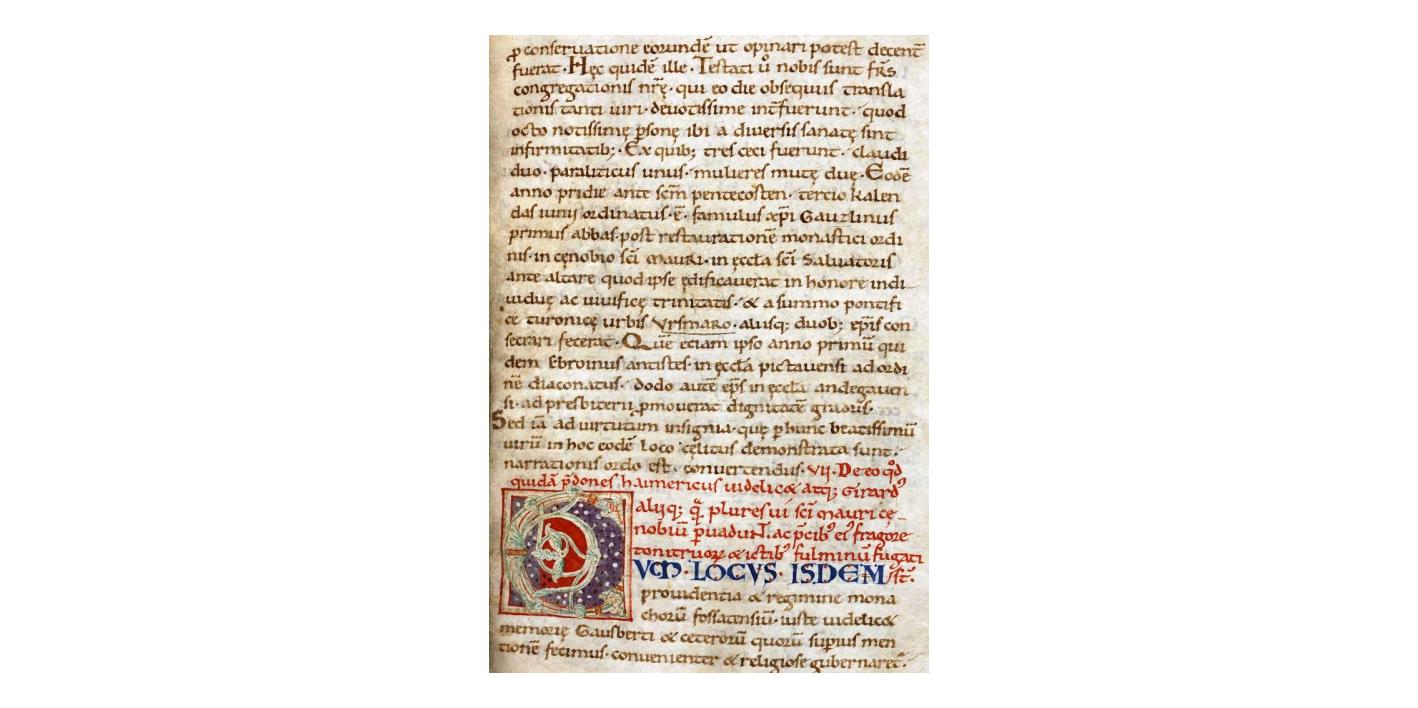 ꝑ conseruatione eorundē ut opinari potest decent̄
fuerat · Hęc quidē ille · Testati ů nobis sunt fr̄s
congregationis nr̄ę · qui eo die obsequiis transla
tionis tanti uiri · deuotissime int̄fuerunt · quod
octo notissimę ꝑsonę ibi a diuersis sanatę sint
infirmitatib; · Ex quib; tres ceci fuerunt · claudi
duo · paraliticus unus · mulieres mutę duę · Eodē
anno pridie ante scm̄ pentecosten · tercio kalen
das iunij ordinatus · ē · famulus xp̄i Gauzlinus
primus abbas · post restaurationē monastici ordi
nis · in cęnobio sc̄i mauri · in ęccła sc̄i Saluatoris
ante altare quod ipse ędificauerat in honore indi
uiduę ac uiuificę trinitatis · & a summo pontifi
ce turonicę urbis Vrsmaro · aliisq; duob; ep̄is con
secrari fecerat · Quē eciam ipso anno primū qui
dem Ebroinus antistes · in ęccła pictauensi ad ordi
nē diaconatus · dodo autē ep̄s in ęccła andegauen
si · ad presbiterii ꝑmouerat dignitatē gradus ·
Sed iā ad uirtutum insignia · quę ꝑ hunc beatissimū
uirū in hoc eodē loco cęlitus demonstrata sunt ·
narrationis ordo est · conuertendus · VIJ · De eo qd̊
quidā p̄dones haimericus uidelic& atq; Girardꝰ
alijq; qͣ plures ui sc̄i mauri cę
nobiū ꝑuadunt · ac p̄cibꝰ eiꝰ fragore
tonitruoꝝ & ictibꝰ fulminū fugati
st̄ ·
DVM · LOCVS · ISDEM
prouidentia & regimine mona
chorū fossatensiū · iuste uidelic&
memorię Gausberti & ceterorū quorū supius men
tionē fecimus · conuenienter & religiose gubernaret̄ ·